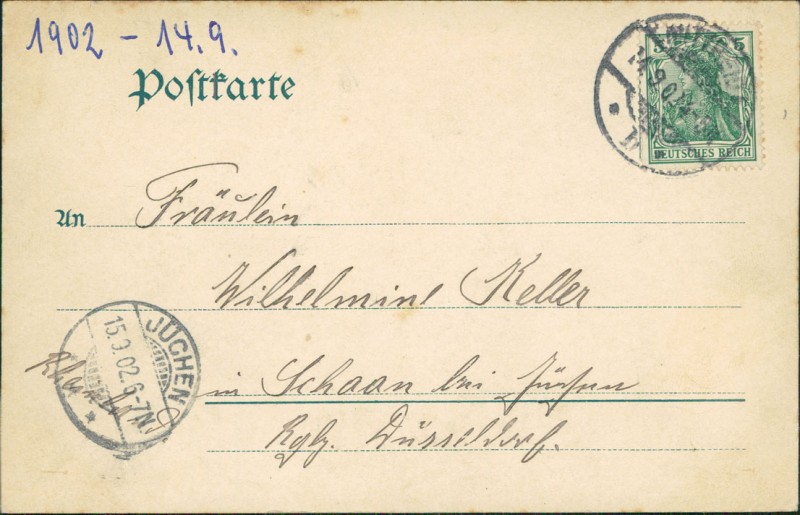 1902 - 14.9.
Postkarte
5 5
DEUTSCHES REICH
An Fräulein
Wilhelmine Keller
in Schaan bei Jüchen
Rgbz. Düsseldorf.
JÜCHEN
15.9.02.6-7N.